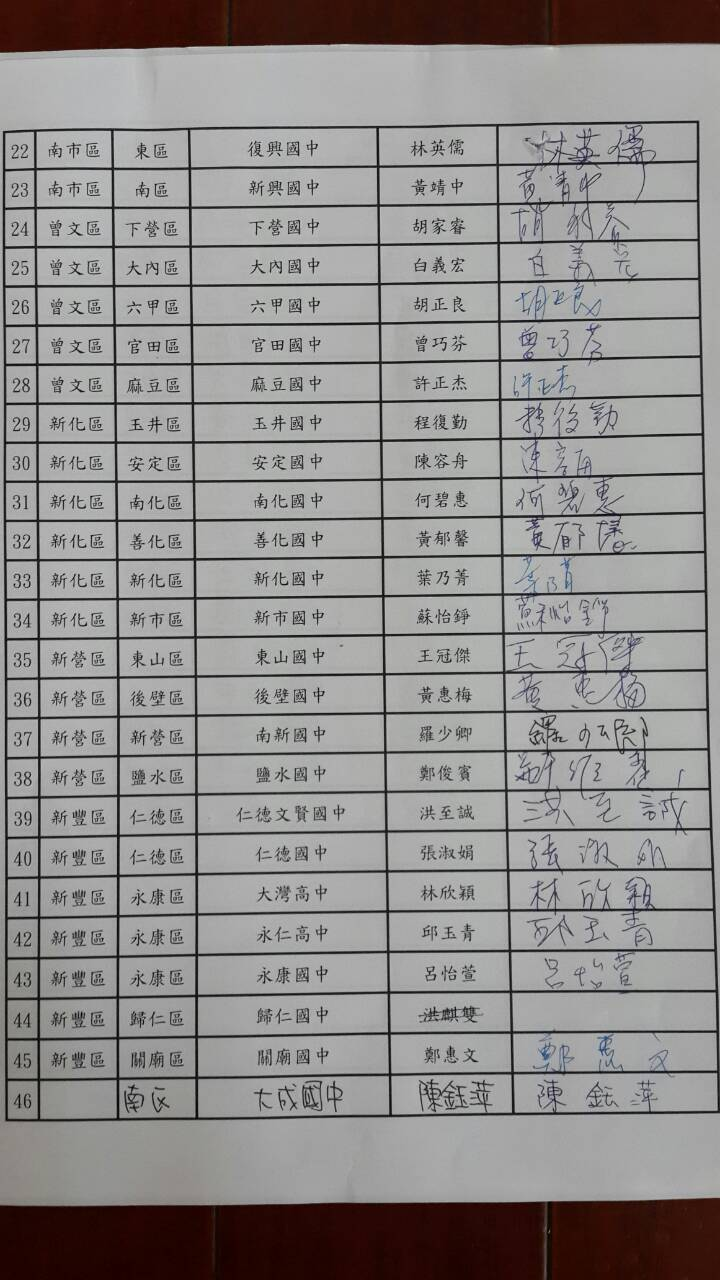 22 南市區 東區 復興國中 林英儒 林英儒
23 南市區 南區 新興國中 黃靖中 黃靖中
24 曾文區 下營區 下營國中 胡家睿 胡
25 曾文區 大內區 大內國中 白義宏 白義宏
26 曾文區 六甲區 六甲國中 胡正良 胡正良
27 曾文區 官田區 官田國中 曾巧芬 曾巧芬
28 曾文區 麻豆區 麻豆國中 許正杰 許正杰
29 新化區 玉井區 玉井國中 程復勤 程復勤
30 新化區 安定區 安定國中 陳容舟 陳容舟
31 新化區 南化區 南化國中 何碧惠 何碧惠
32 新化區 善化區 善化國中 黃郁馨 黃郁馨
33 新化區 新化區 新化國中 葉乃菁 葉乃菁
34 新化區 新市區 新市國中 蘇怡錚 蘇怡錚
35 新營區 東山區 東山國中 王冠傑 王冠傑
36 新營區 後壁區 後壁國中 黃惠梅 黃惠梅
37 新營區 新營區 南新國中 羅少卿 羅少卿
38 新營區 鹽水區 鹽水國中 鄭俊賓
39 新豐區 仁德區 仁德文賢國中 洪至誠 洪至誠
40 新豐區 仁德區 仁德國中 張淑娟 張淑娟
41 新豐區 永康區 大灣高中 林欣穎 林欣穎
42 新豐區 永康區 永仁高中 邱玉青 邱玉青
43 新豐區 永康區 永康國中 呂怡萱 呂怡萱
44 新豐區 歸仁區 歸仁國中 洪麒雙
45 新豐區 關廟區 關廟國中 鄭惠文 鄭惠文
46 南區 大成國中 陳鈺萍 陳鈺萍